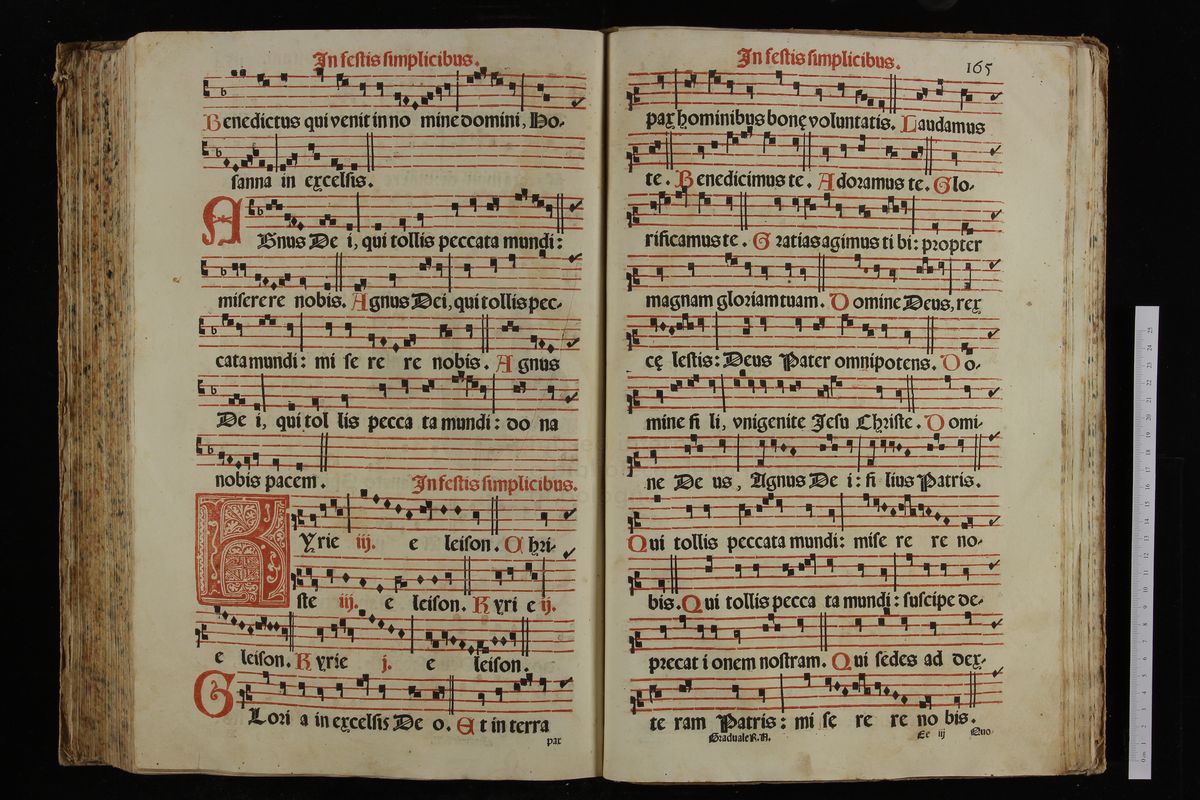 In festis simplicibus.
Benedictus qui venit in no mine domini, Ho-
sanna in excelsis.
AGnus De i, qui tollis peccata mundi:
miserere re nobis. Agnus Dei, qui tollis pec-
cata mundi: mi se re re nobis. Agnus
De i, qui tol lis pecca ta mundi: do na
nobis pacem.
In festis simplicibus.
KYrie iij. e leison. Chri-
ste iij. e leison. Kyri e ij.
e leison. Kyrie j. e leison.
GLori a in excelsis De o. Et in terra
pax
In festis simplicibus.
165
pax hominibus bonę voluntatis. Laudamus
te. Benedicimus te. Adoramus te. Glo-
rificamus te. Gratias agimus ti bi: propter
magnam gloriam tuam. Domine Deus, rex
cę lestis: Deus Pater omnipotens. Do-
mine fi li, vnigenite Jesu Christe. Domi-
ne De us, Agnus De i: fi lius Patris.
Qui tollis peccata mundi: mise re re no-
bis. Qui tollis pecca ta mundi: suscipe de-
precat i onem nostram. Qui sedes ad dex-
te ram Patris: mi se re re no bis.
Graduale R. A.
Ee iij
Quo-